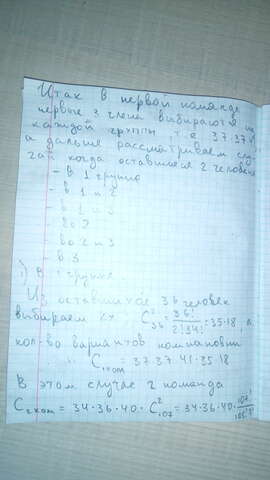 Итак в первой команде
первые 3 члена выбираются из
каждой группы т.е 37·37·41
а дальше рассматриваем слу-
чаи когда оставшиеся 2 человека
- в 1 группе
- в 1 и 2
- в 1 и 3
- во 2
- во 2 и 3
- в 3
1) в 1 группе
Из оставшихся 36 человек
выбираем 2х C²₃₆ = 36!/2!34! = 35·18 и
кол-во вариантов компановки
C₁ком = 37·37·41·35·18
В этом случае 2 команда
C₂ком = 34·36·40·C²₁₀₇ = 34·36·40·107!/105!2!